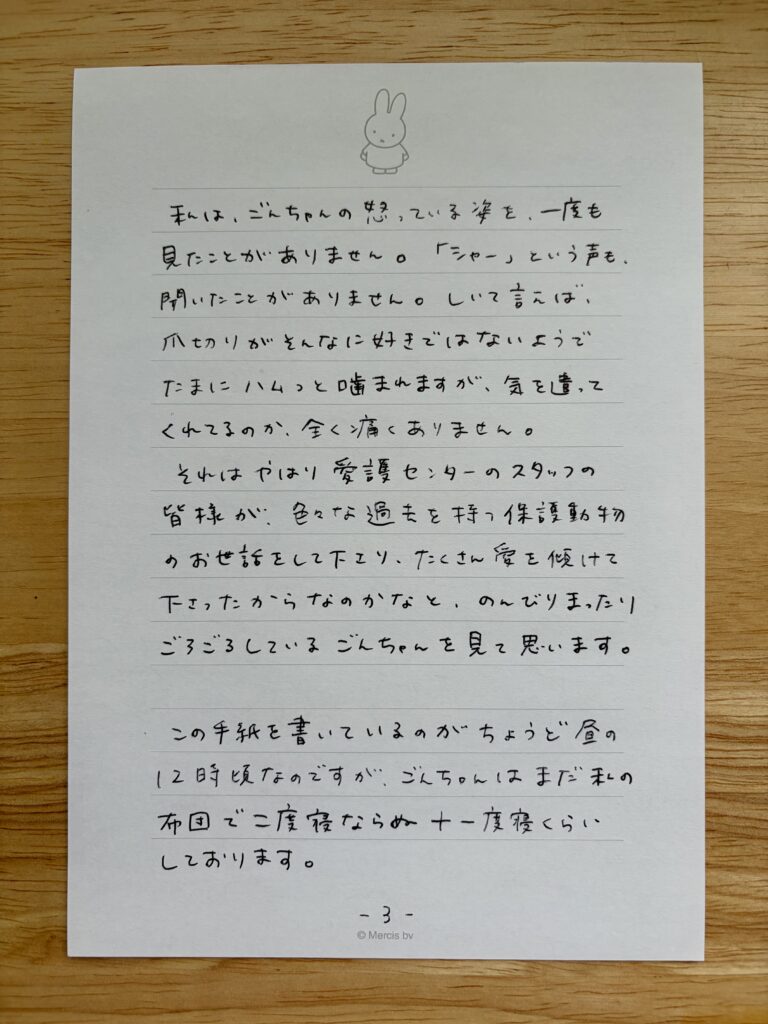 私は、ごんちゃんの怒っている姿を、一度も
見たことがありません。「シャー」という声も、
聞いたことがありません。しいて言えば、
爪切りがそんなに好きではないようで
たまにハムっと噛まれますが、気を遣って
くれてるのか、全く痛くありません。
それはやはり愛護センターのスタッフの
皆様が、色々な過去を持つ保護動物
のお世話をして下さり、たくさん愛を傾けて
下さったからなのかなと、のんびりまったり
ごろごろしているごんちゃんを見て思います。
この手紙を書いているのがちょうど昼の
12時頃なのですが、ごんちゃんはまだ私の
布団で二度寝ならぬ十一度寝くらい
しております。
- 3 -
© Mercis bv